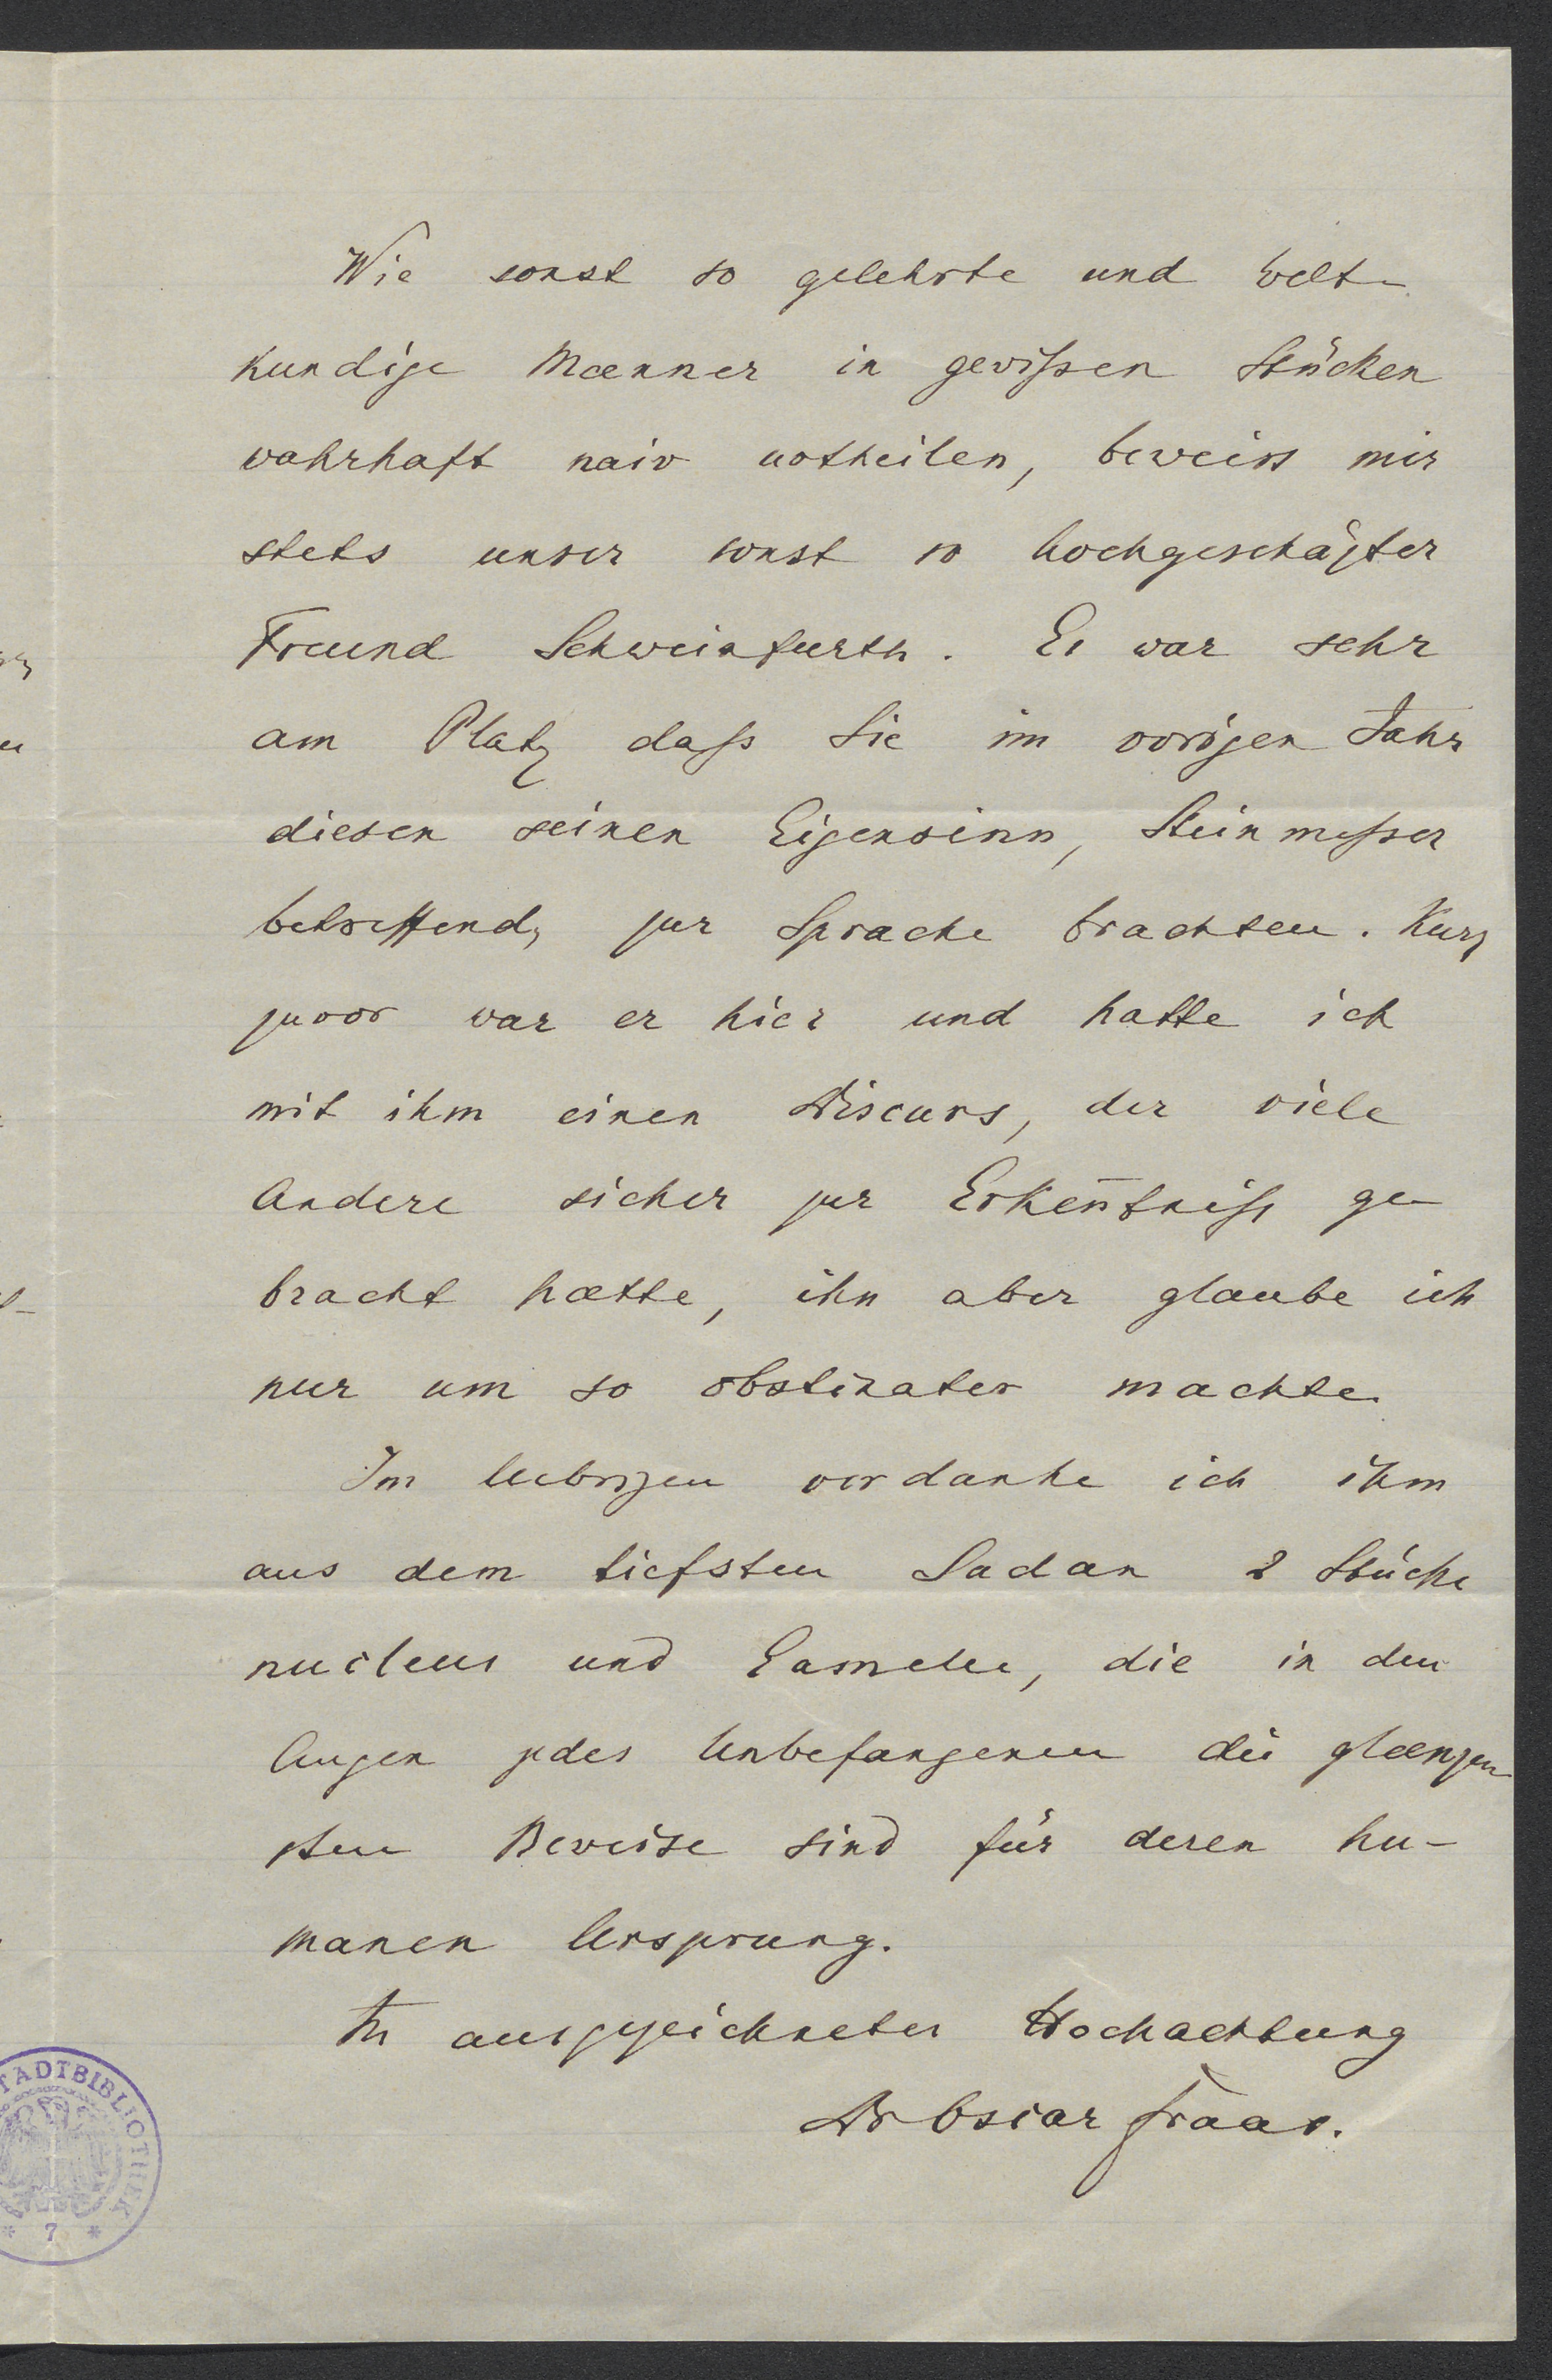 Wie sonst so gelehrte und welt-
kundige Maenner in gewißen Stücken
wahrhaft naiv urtheilen, beweist mir
stets unser sonst so hochgeschäzter
Freund Schweinfurth. Es war sehr
am Platz daß Sie im vorigen Jahr
diesen seinen Eigensinn, Steinmeßer
betreffend, zur Sprache brachten. Kurz
zuvor war er hier und hatte ich
mit ihm einen Discurs, der viele
Andere sicher zur Erken̄tniß ge-
bracht hætte, ihn aber glaube ich
nur um so obstinater machte.
Im Uebrigen verdanke ich ihm
aus dem tiefsten Sudan 2 Stücke
nucleus und Lamelle, die in den
Augen jedes Unbefangenen die glænzen
sten Beweise sind für deren hu-
manen Ursprung.
In ausgezeichneter Hochachtung
Dr Oscar Fraas.
STADTBIBLIOTHEK
* 7 *